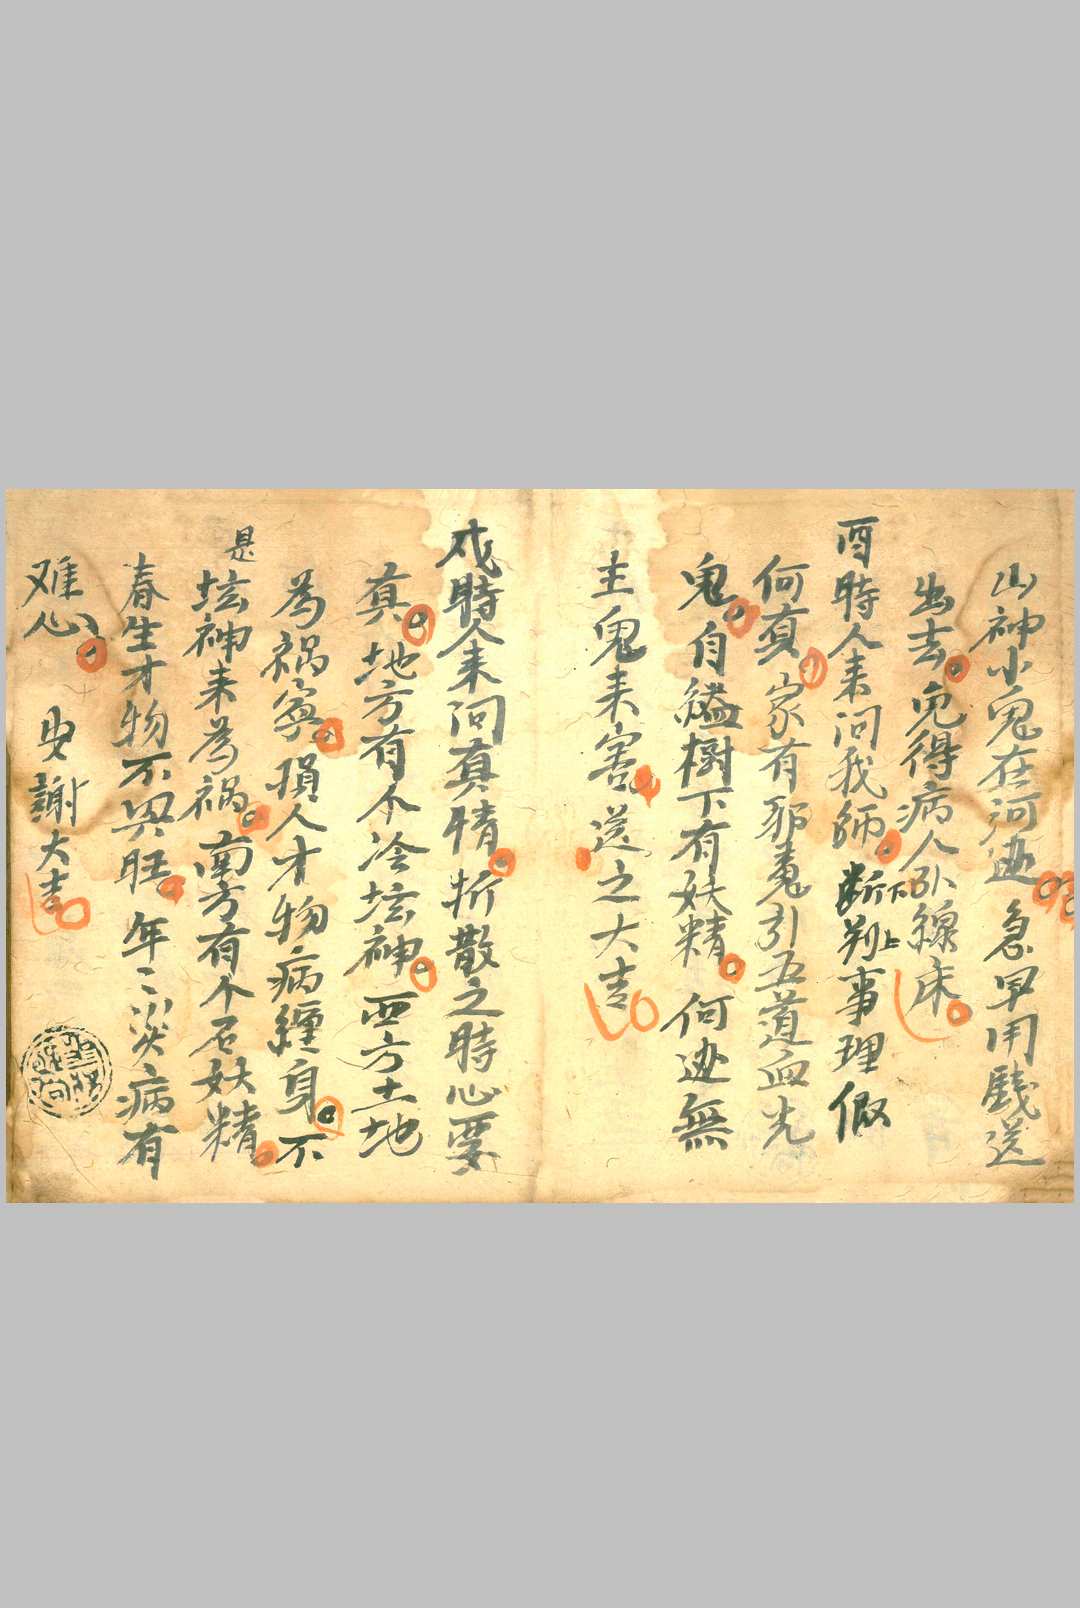 山神小鬼在河边急早用戲送
出去免得病人卧線床
酉時人来问我師断下判上事理假
何真家有邪鬼引五道血光
鬼自縊樹下有妖精何边無
主鬼来害送之大吉
戌時人来问真情折散之時心要
真地方有个冷坛神西方土地
為祸寃損人才物病纏身不
是坛神来為祸南方有个石妖精
春生才物不興旺年〻災病有
难心安謝大吉